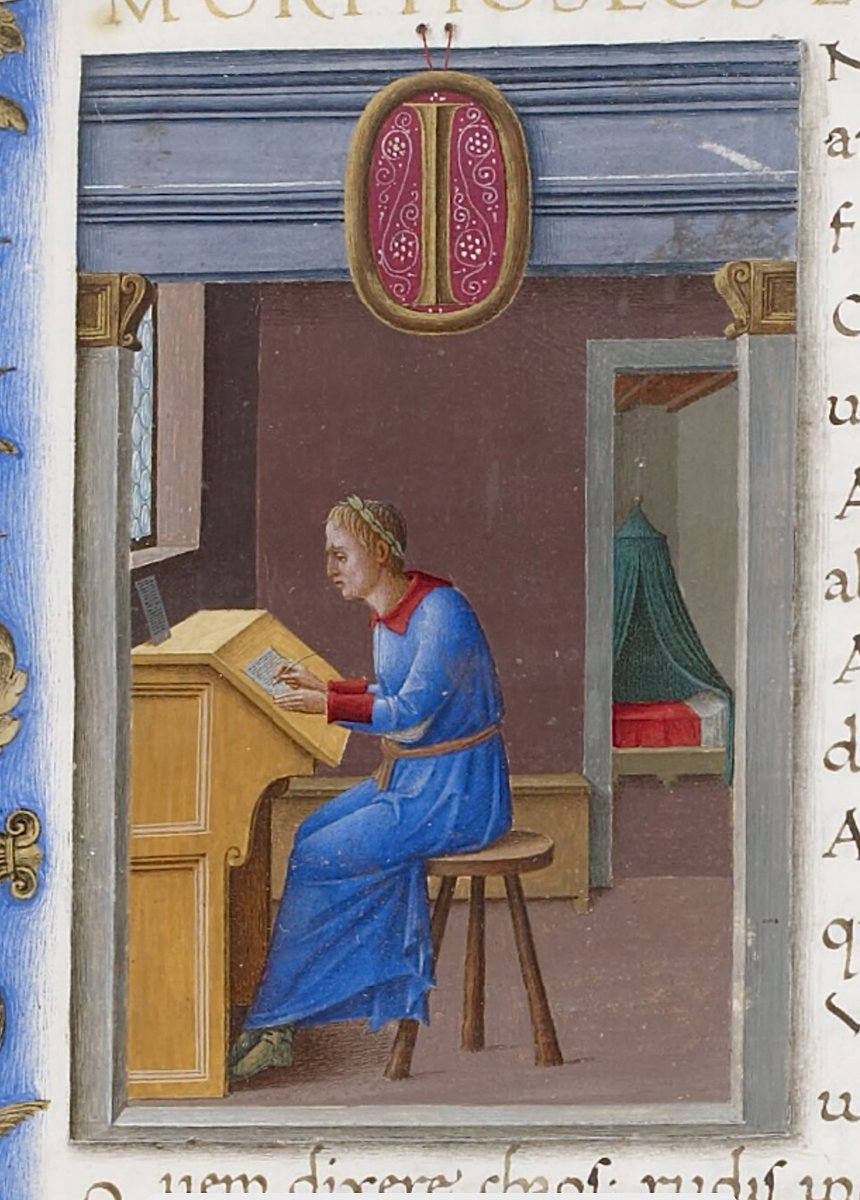 MORPHOSEOS
I
N
a
f
u
A
al
A
d
A
q
u
Q uem dixere chaos: rudis in